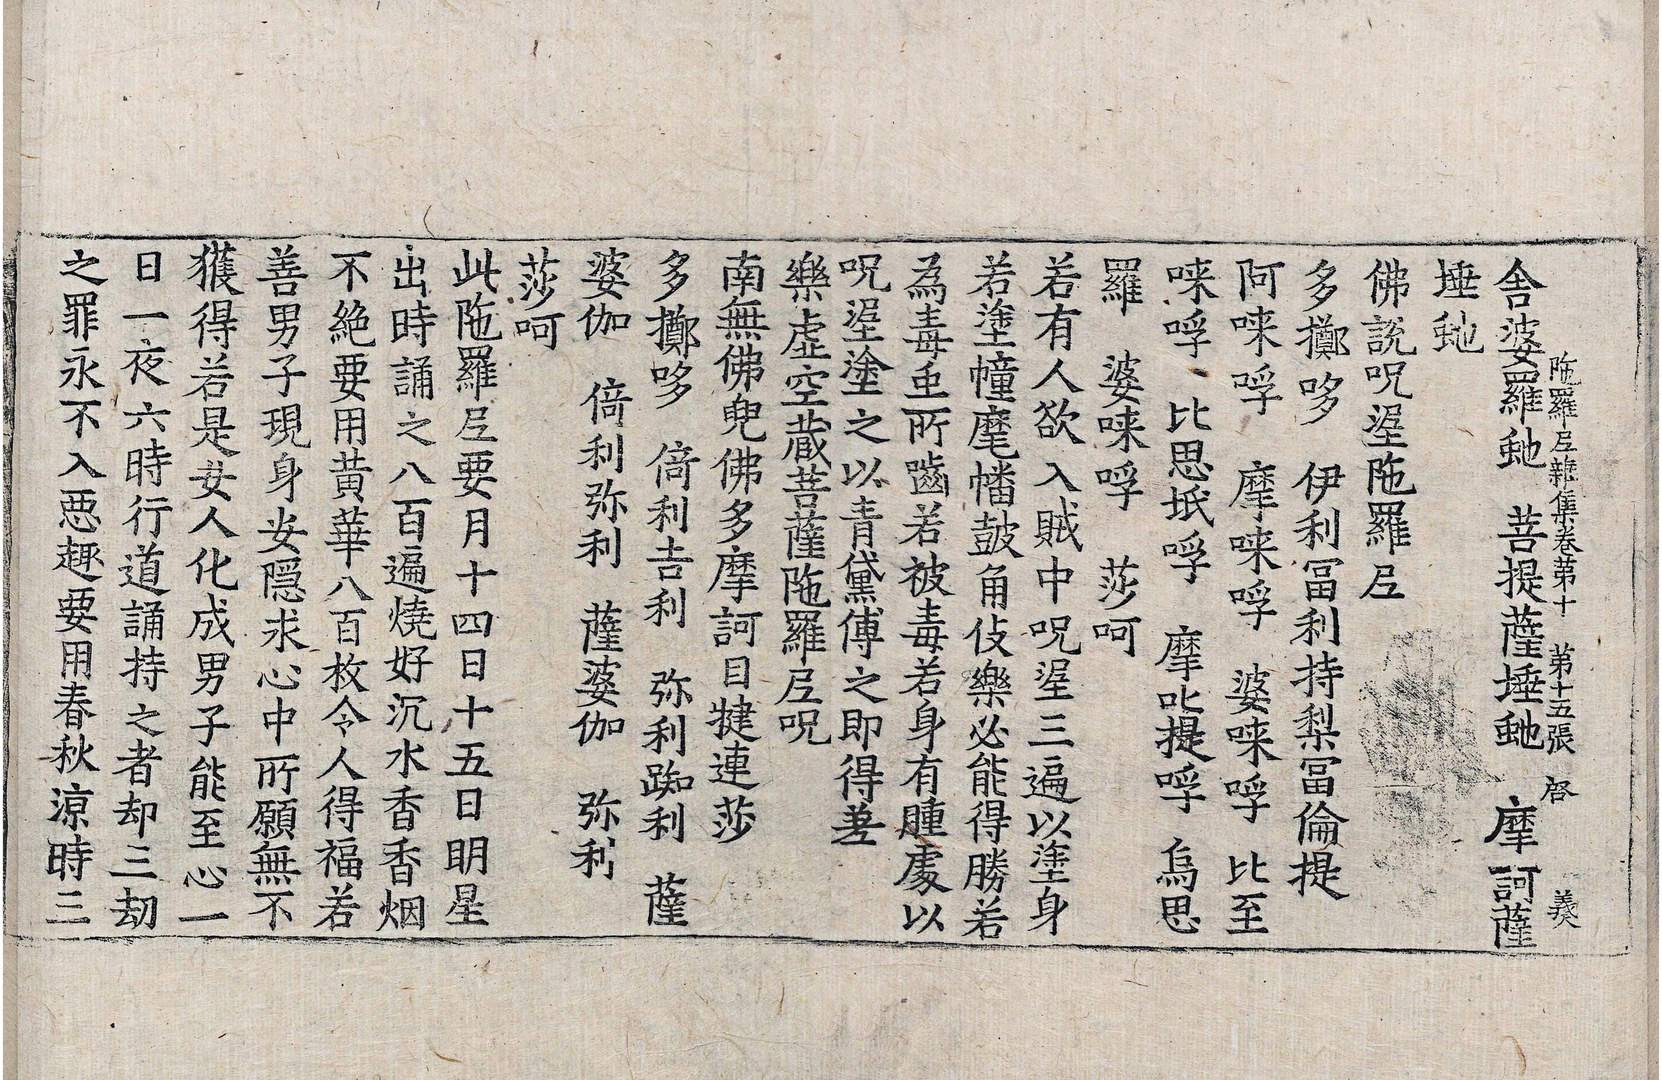 陁羅𡰱雜集卷第十 第十五張 啓 義
舎婆羅虵 菩提薩埵虵 摩訶薩
埵虵
佛說呪埿陁羅𡰱
多擲哆 伊利冨利持梨冨倫提
阿唻呼 摩唻呼 婆唻呼 比至
唻呼 比思坻呼 摩叱提呼 烏思
羅 婆唻呼 莎呵
若有人欲入賊中呪埿三遍以塗身
若塗幢麾幡皷角伎樂必能得勝若
為毒虫所嚙若被毒若身有腫處以
呪埿塗之以青黛傅之即得差
樂虛空藏菩薩陁羅𡰱呪
南無佛兜佛多摩訶目揵連莎
多擲哆 倚利吉利 弥利踟利 薩
婆伽 倚利弥利 薩婆伽 弥利
莎呵
此陁羅𡰱要月十四日十五日明星
出時誦之八百遍燒好沉水香香烟
不絶要用黃華八百枚令人得福若
善男子現身安隱求心中所願無不
獲得若是女人化成男子能至心一
日一夜六時行道誦持之者却三劫
之罪永不入惡趣要用春秋涼時三